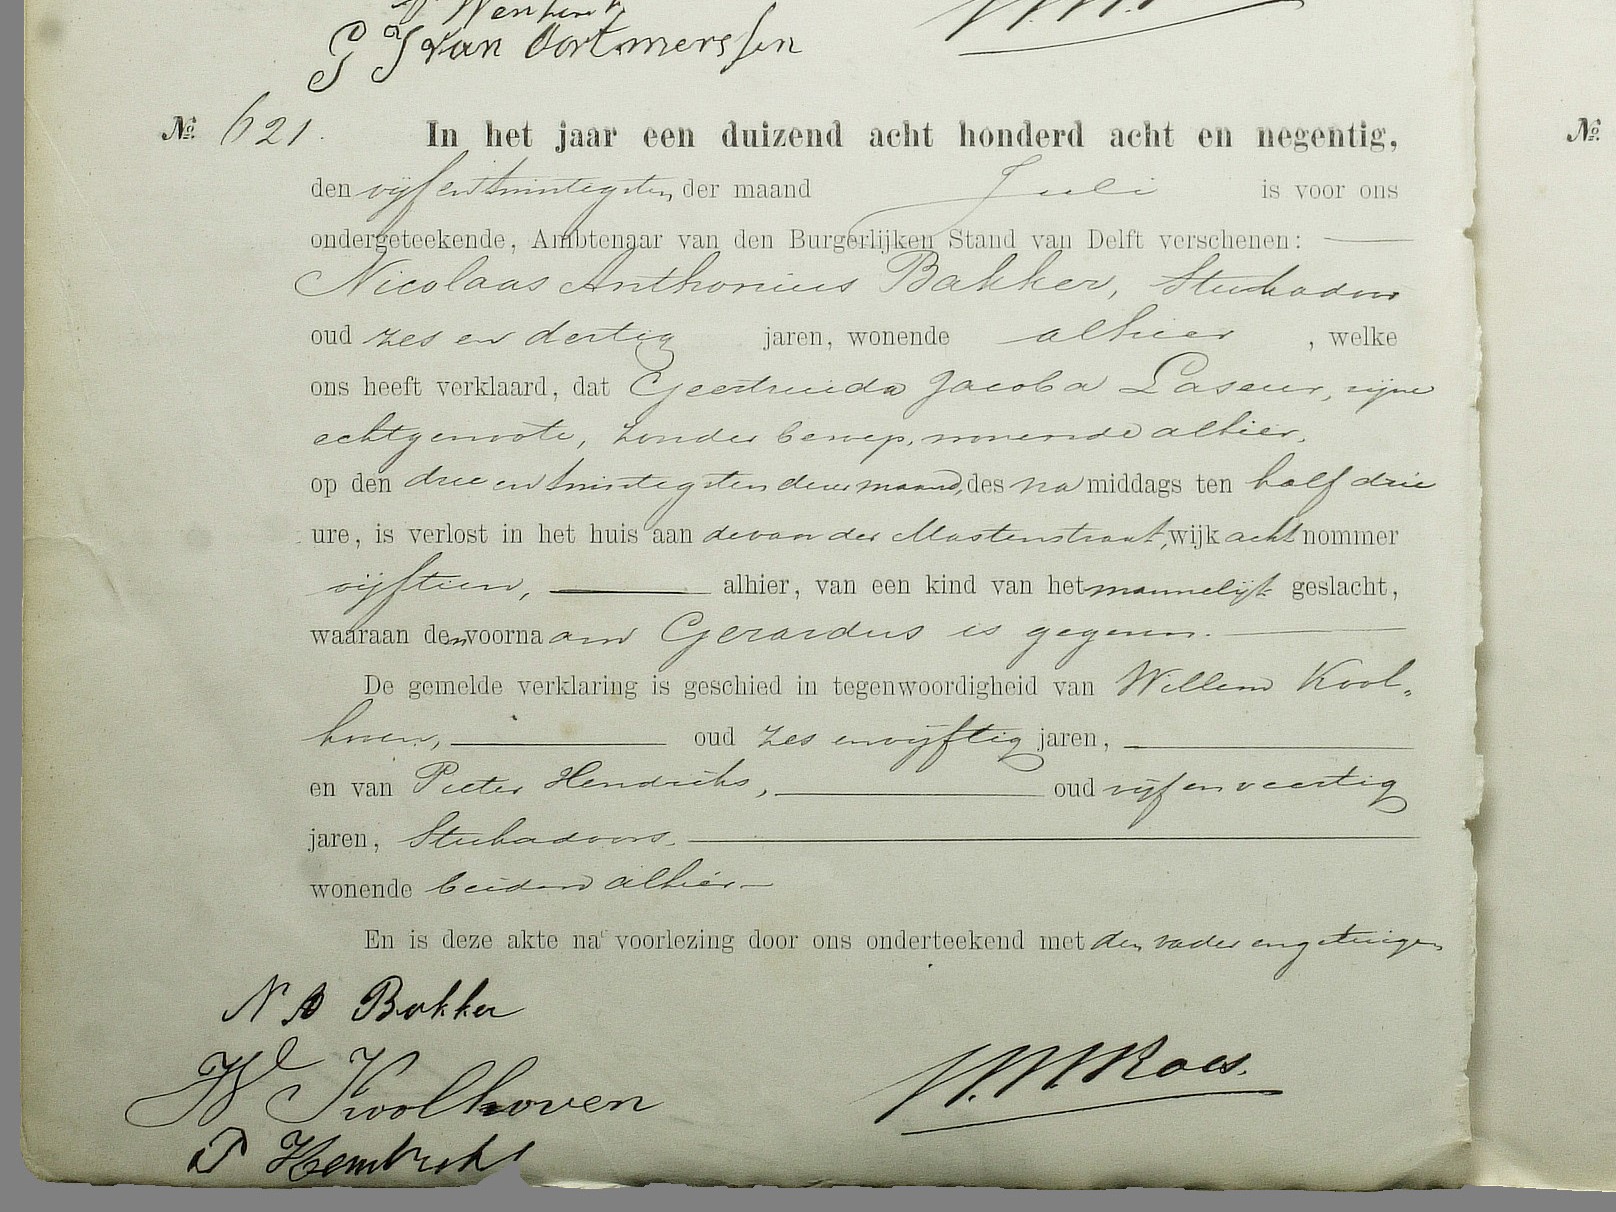 G J van Oortmerssen
№ 621. In het jaar een duizend acht honderd acht en negentig, №
den vijf en twintigsten der maand Juli is voor ons
ondergeteekende, Ambtenaar van den Burgerlijken Stand van Delft verschenen:
Nicolaas Anthonius Bakker, Stukadoor
oud zes en dertig jaren, wonende alhier, welke
ons heeft verklaard, dat Geertruida Jacoba Laseur, zijne
echtgenoote, zonder beroep, wonende alhier,
op den drie en twintigsten dezer maand, des na middags ten half drie
ure, is verlost in het huis aan de van der Mastenstraat, wijk acht nommer
vijftien, alhier, van een kind van het mannelijk geslacht,
waaraan den voornaam Gerardus is gegeven.
De gemelde verklaring is geschied in tegenwoordigheid van Willem Kool„
hoven, oud zes en vijftig jaren,
en van Pieter Hendriks, oud vijf en veertig
jaren, Stukadoors.
wonende beiden alhier
En is deze akte na voorlezing door ons onderteekend met den vader en getuigen
N A Bakker
W Koolhoven
P Hendriks